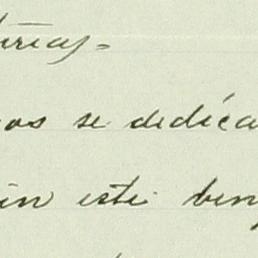 térias=
os se dedica
in este ben